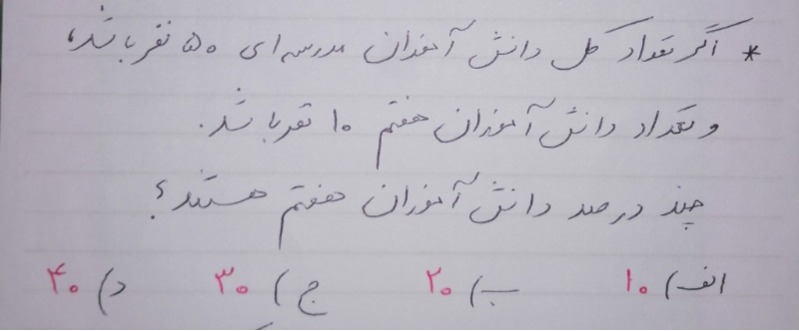 * اگر تعداد کل دانش آموزان مدرسه ای ۵۰ نفر باشد،
و تعداد دانش آموزان هفتم ۱۰ نفر باشد.
چند درصد دانش آموزان هفتم هستند؟
الف) ۱۰ ب) ۲۰ ج) ۳۰ د) ۴۰